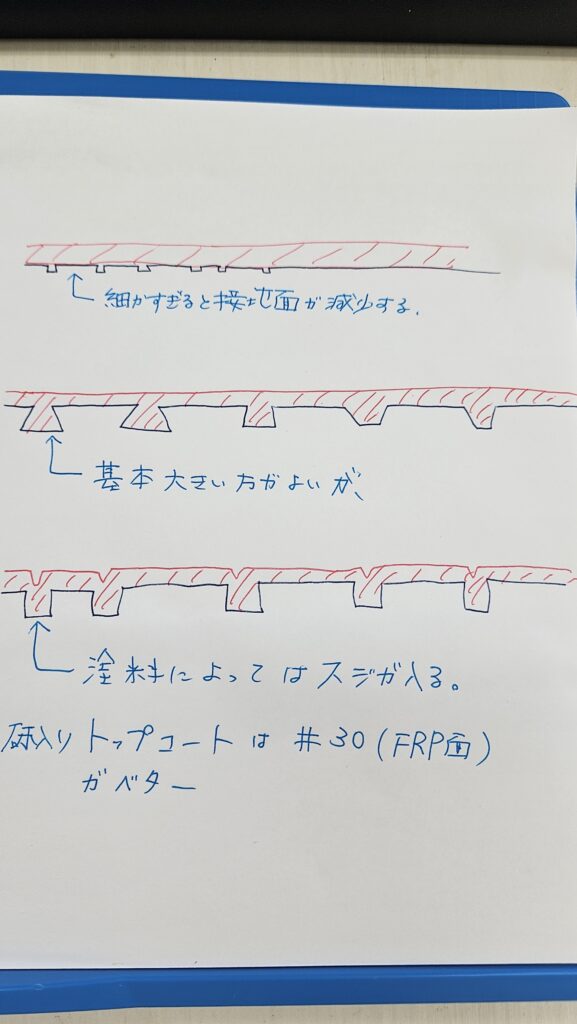 細かすぎると接地面が減少する.
基本大きい方がよいが、
塗料によってはスジが入る。
砂入りトップコートは #30(FRP面)
がベター